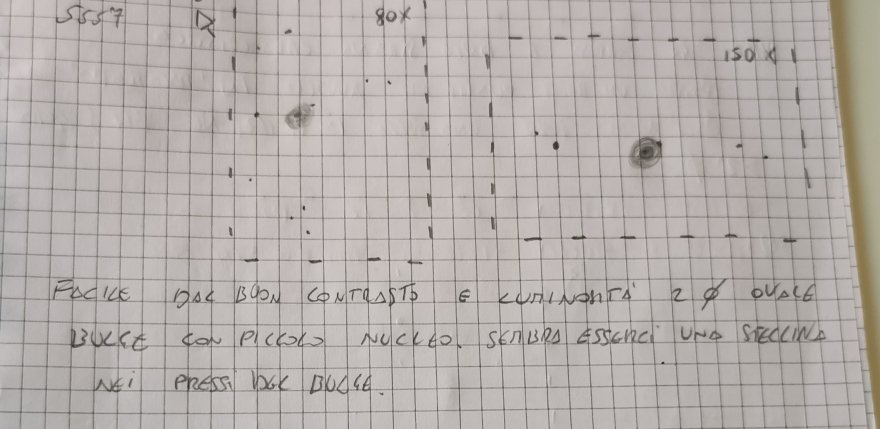 5557 80X
150X
FACILE DAL BUON CONTRASTO E LUMINOSITÀ 2 Ø OVALE
BULGE CON PICCOLO NUCLEO. SEMBRA ESSERCI UNA STELLINA
NEI PRESSI DEL BULGE.